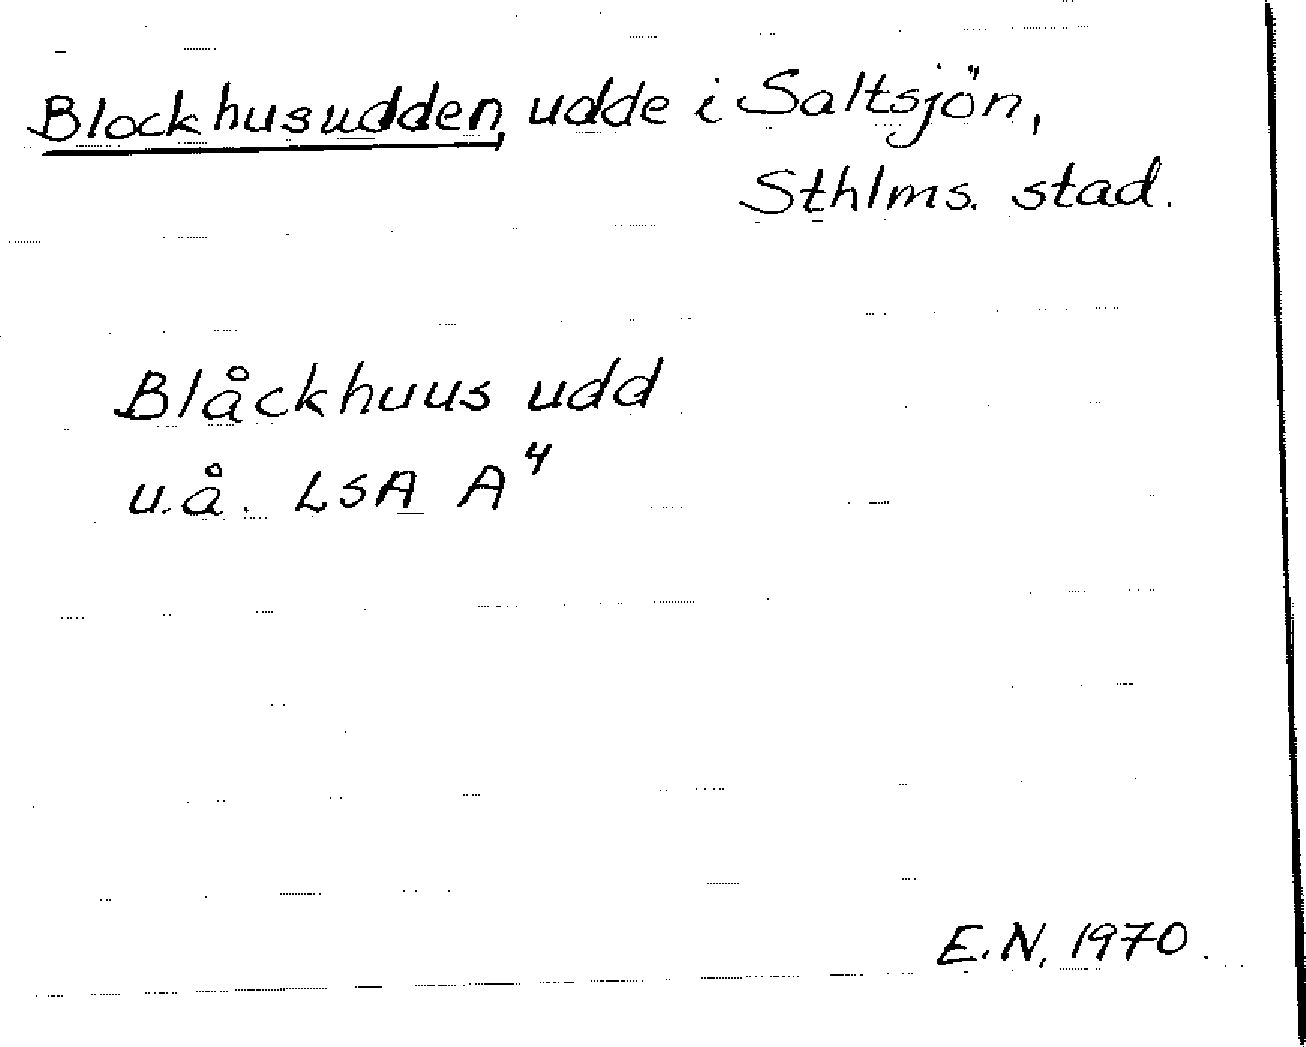 Blockhusudden, udde i Saltsjön,
Sthlms. stad.
Blåckhuus udd
u.å. LSA A⁴
E.N. 1970.